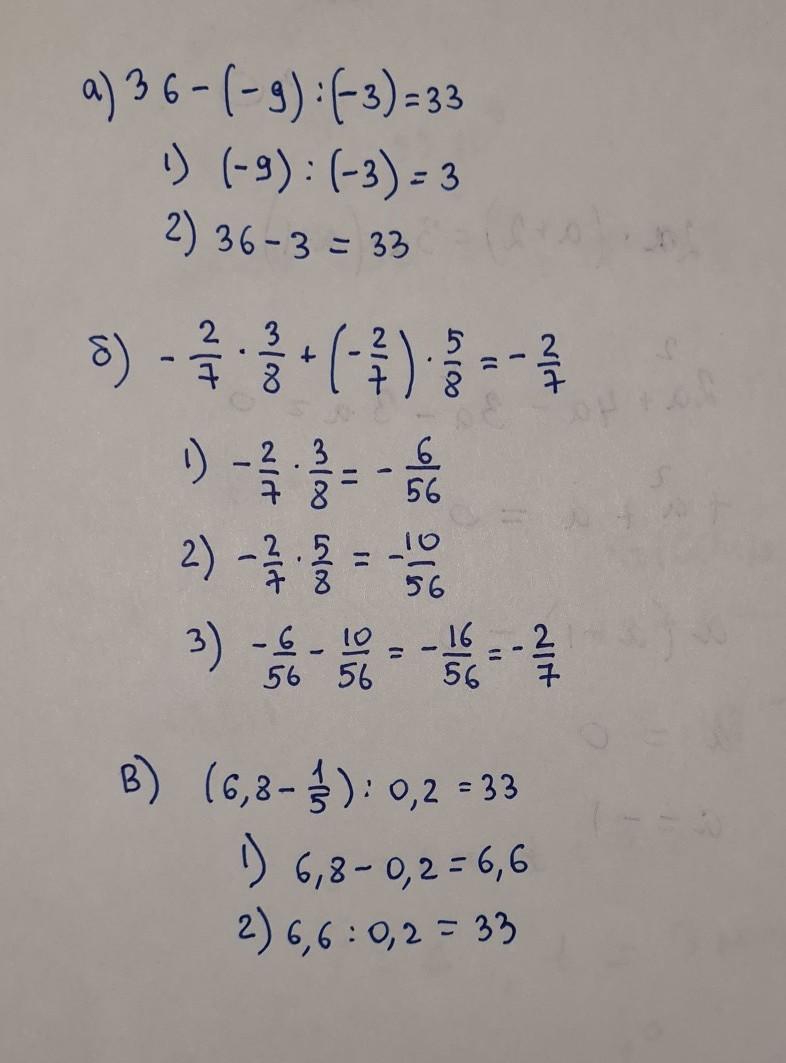 а) 36 - (-9) : (-3) = 33
1) (-9) : (-3) = 3
2) 36 - 3 = 33
б) - 2/7 · 3/8 + (- 2/7) · 5/8 = - 2/7
1) - 2/7 · 3/8 = - 6/56
2) - 2/7 · 5/8 = - 10/56
3) - 6/56 - 10/56 = - 16/56 = - 2/7
В) (6,8 - 1/5) : 0,2 = 33
1) 6,8 - 0,2 = 6,6
2) 6,6 : 0,2 = 33